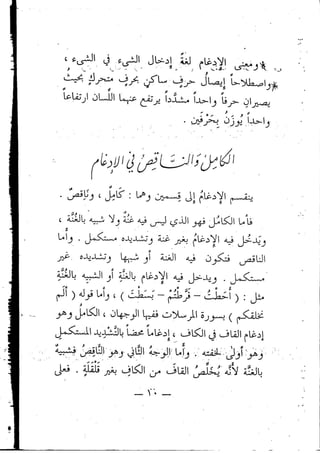 * ومعنى الإدغام لغة إدخال الشيء في الشيء ،
واصطلاحا إيصال حرف ساكن بحرف متحرك بحيث
يصيران حرفا واحدا مشددا يرتفع عنهما اللسان ارتفاعا
واحدا يوزن بحرفين .
الكامل والناقص في الإدغام
ينقسم الإدغام إلى قسمين وهما : كامل ، وناقص .
فأما الكامل فهو الذي ليس فيه غنة ولا شبيه بالغنة ،
ويدخل فيه الإدغام بغير غنة وتشديده مستكمل . وأما
الناقص فتكون فيه الغنة أو شبهها وتشديده غير
مستكمل . ويدخل فيه الإدغام بالغنة أو الشبيه بالغنة
مثل : ( أحطت – فرطتم – بسطت ) ، وأما قوله ( ألم
نخلقكم ) بسورة المرسلات ففيها الوجهان ، الكامل وهو
إدغام القاف في الكاف ، إدغاما محضا بالتشديد المستكمل
وهو أولى لخفته . وأما الوجه الثاني وهو الناقص فشبيه
بالغنة لأنه يخلص القاف من الكاف بغير قلقلة . فعلى
— ٢٠ —